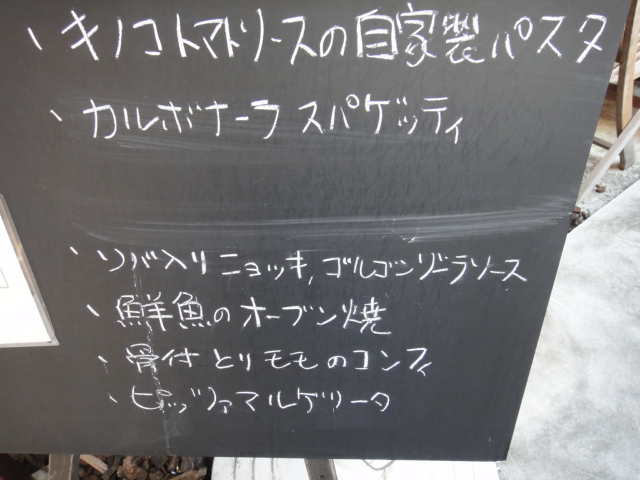 、キノコトマトソースの自家製パスタ
、カルボナーラ スパゲッティ
、ソバ入リニョッキ,ゴルゴンゾーラソース
、鮮魚のオーブン焼
、骨付とりモモのコンフィ
、ピッツァマルゲリータ